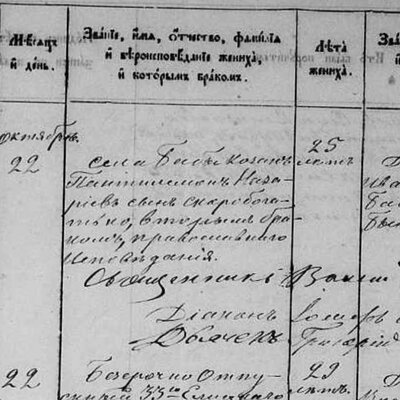 Мѣсяцъ
и день.
Званіе, имя, отчество, фамилія
и вѣроисповѣданіе жениха,
и которымъ бракомъ.
Лѣта
жениха.
Зва
октябрь
22
села Бабы козакъ
Пантилемонъ Наза-
ріевъ сынъ Скоробога-
тько, вторымъ бра-
комъ, православнаго
исповѣданія.
25
лѣтъ
Священникъ
Діаконъ
Дьячекъ
Григорій
22
Безсрочно отпу-
33
29
лѣтъ